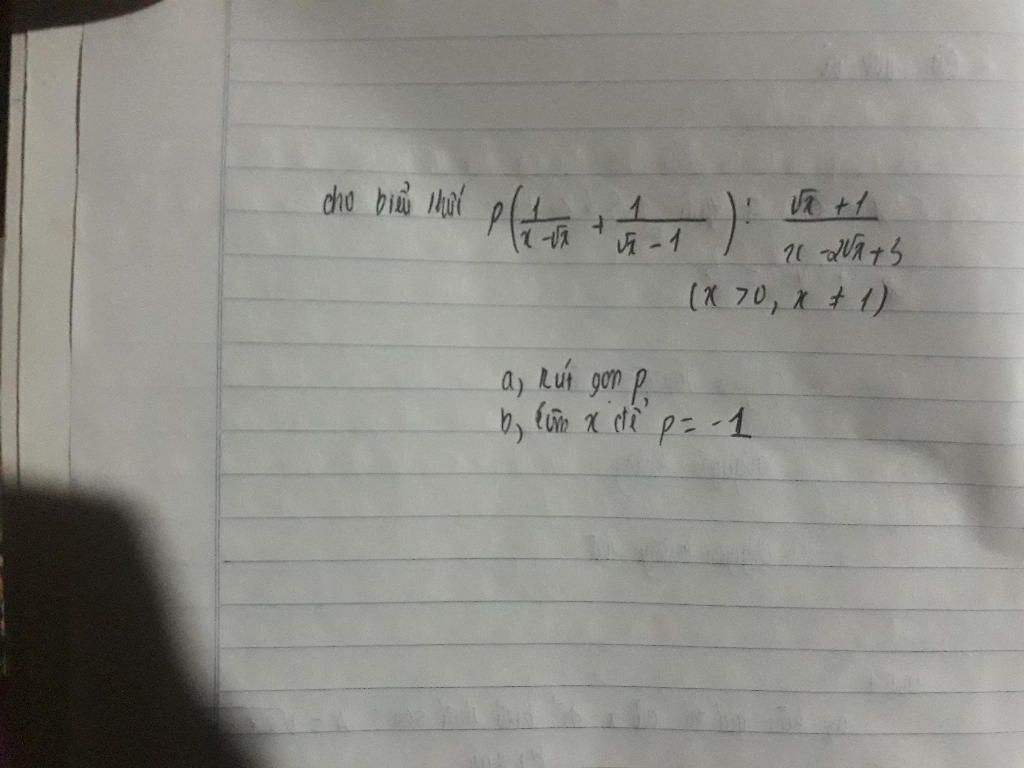 cho biểu thức P(1/(x-√x) + 1/(√x-1)) : (√x+1)/(x-2√x+5)
(x >0, x ≠ 1)
a, Rút gọn P,
b, tìm x để P = -1